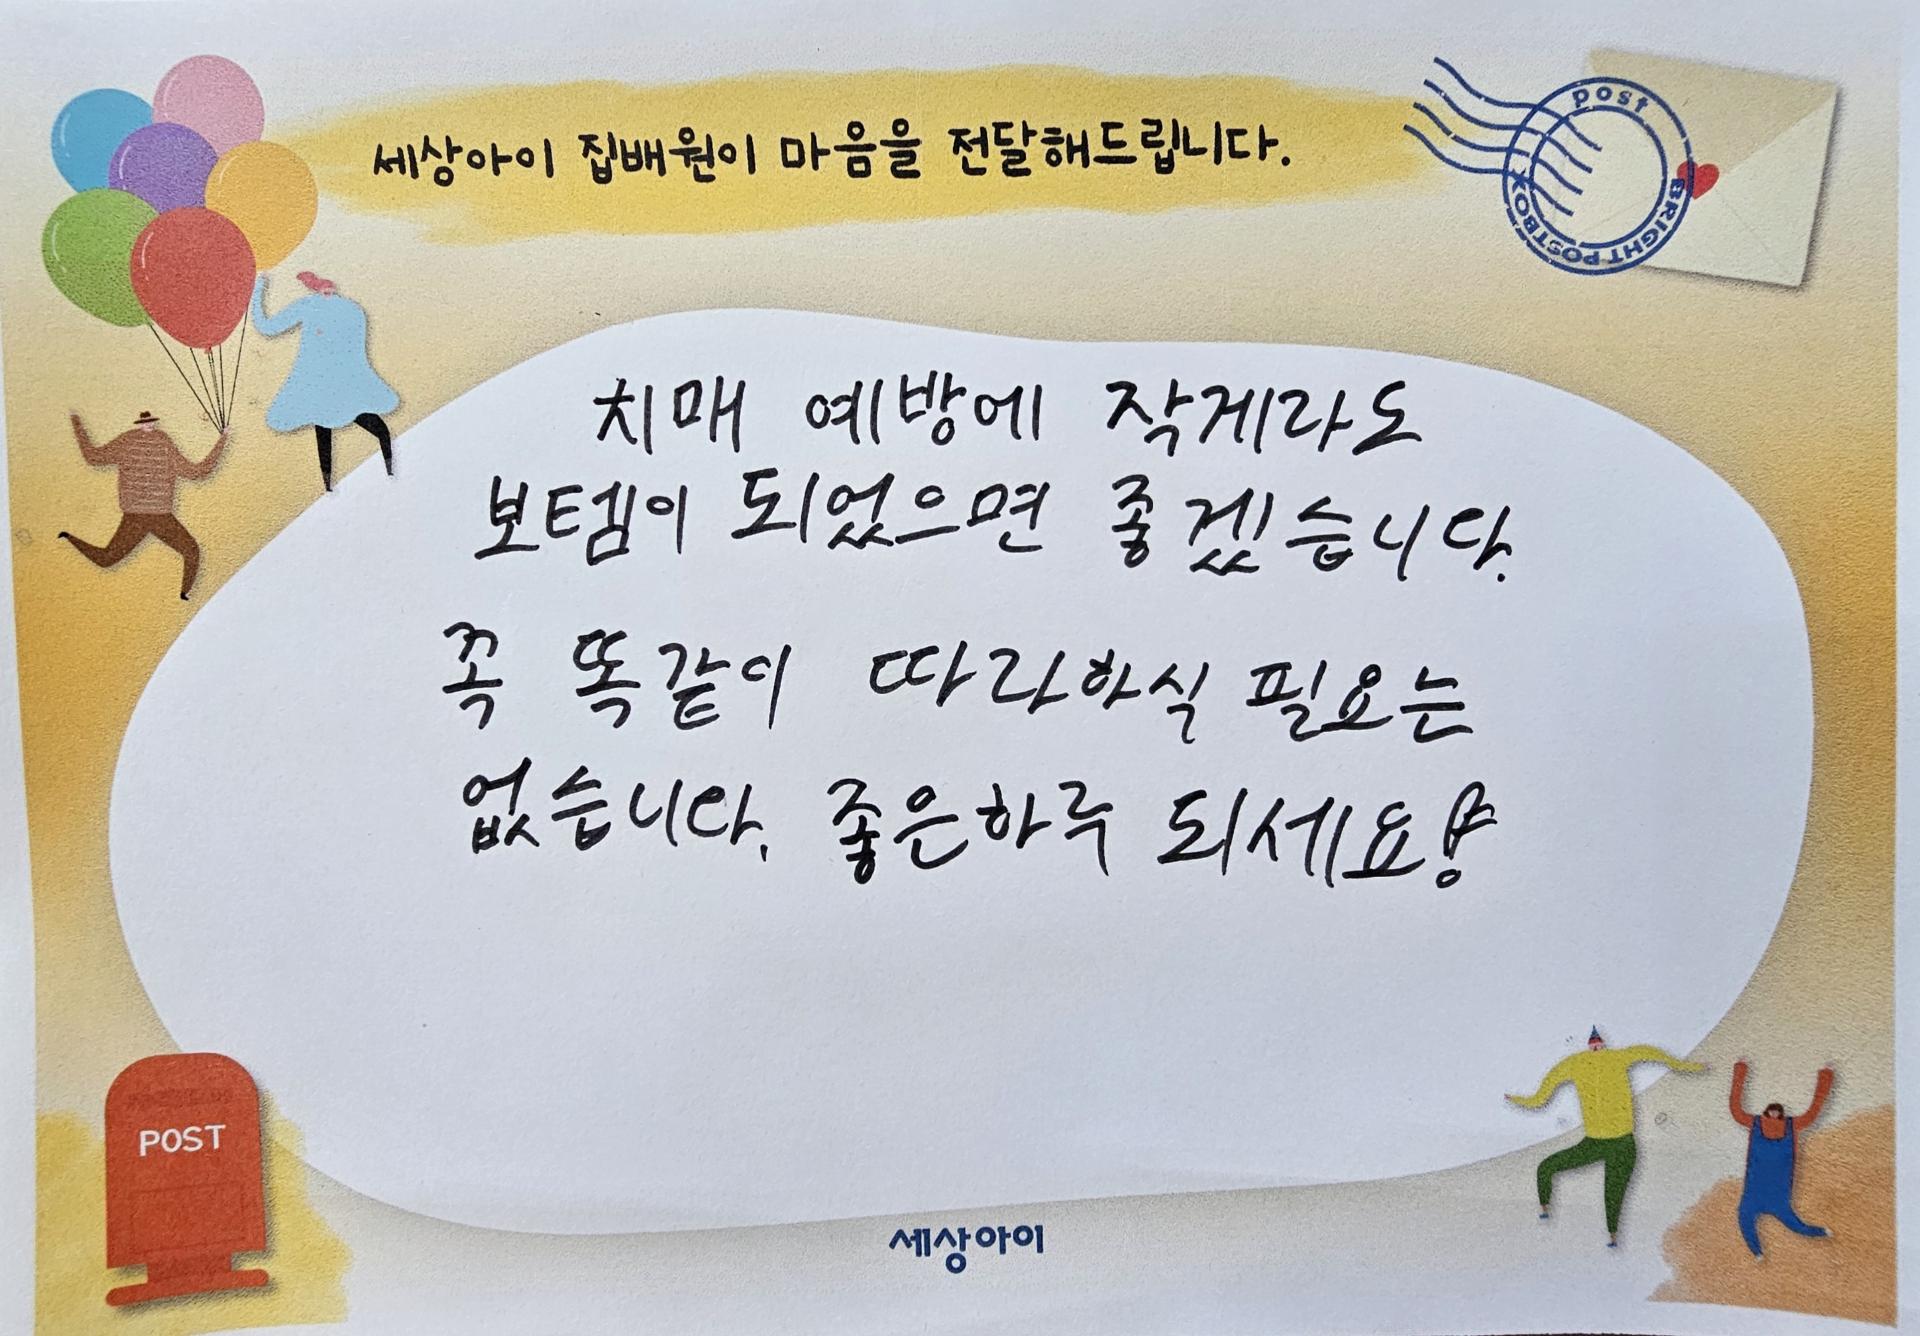 세상아이 집배원이 마음을 전달해드립니다.
post
BRIGHT POSTBOX
치매 예방에 작게라도
보템이 되었으면 좋겠습니다.
꼭 똑같이 따라하실 필요는
없습니다. 좋은하루 되세요!
POST
세상아이